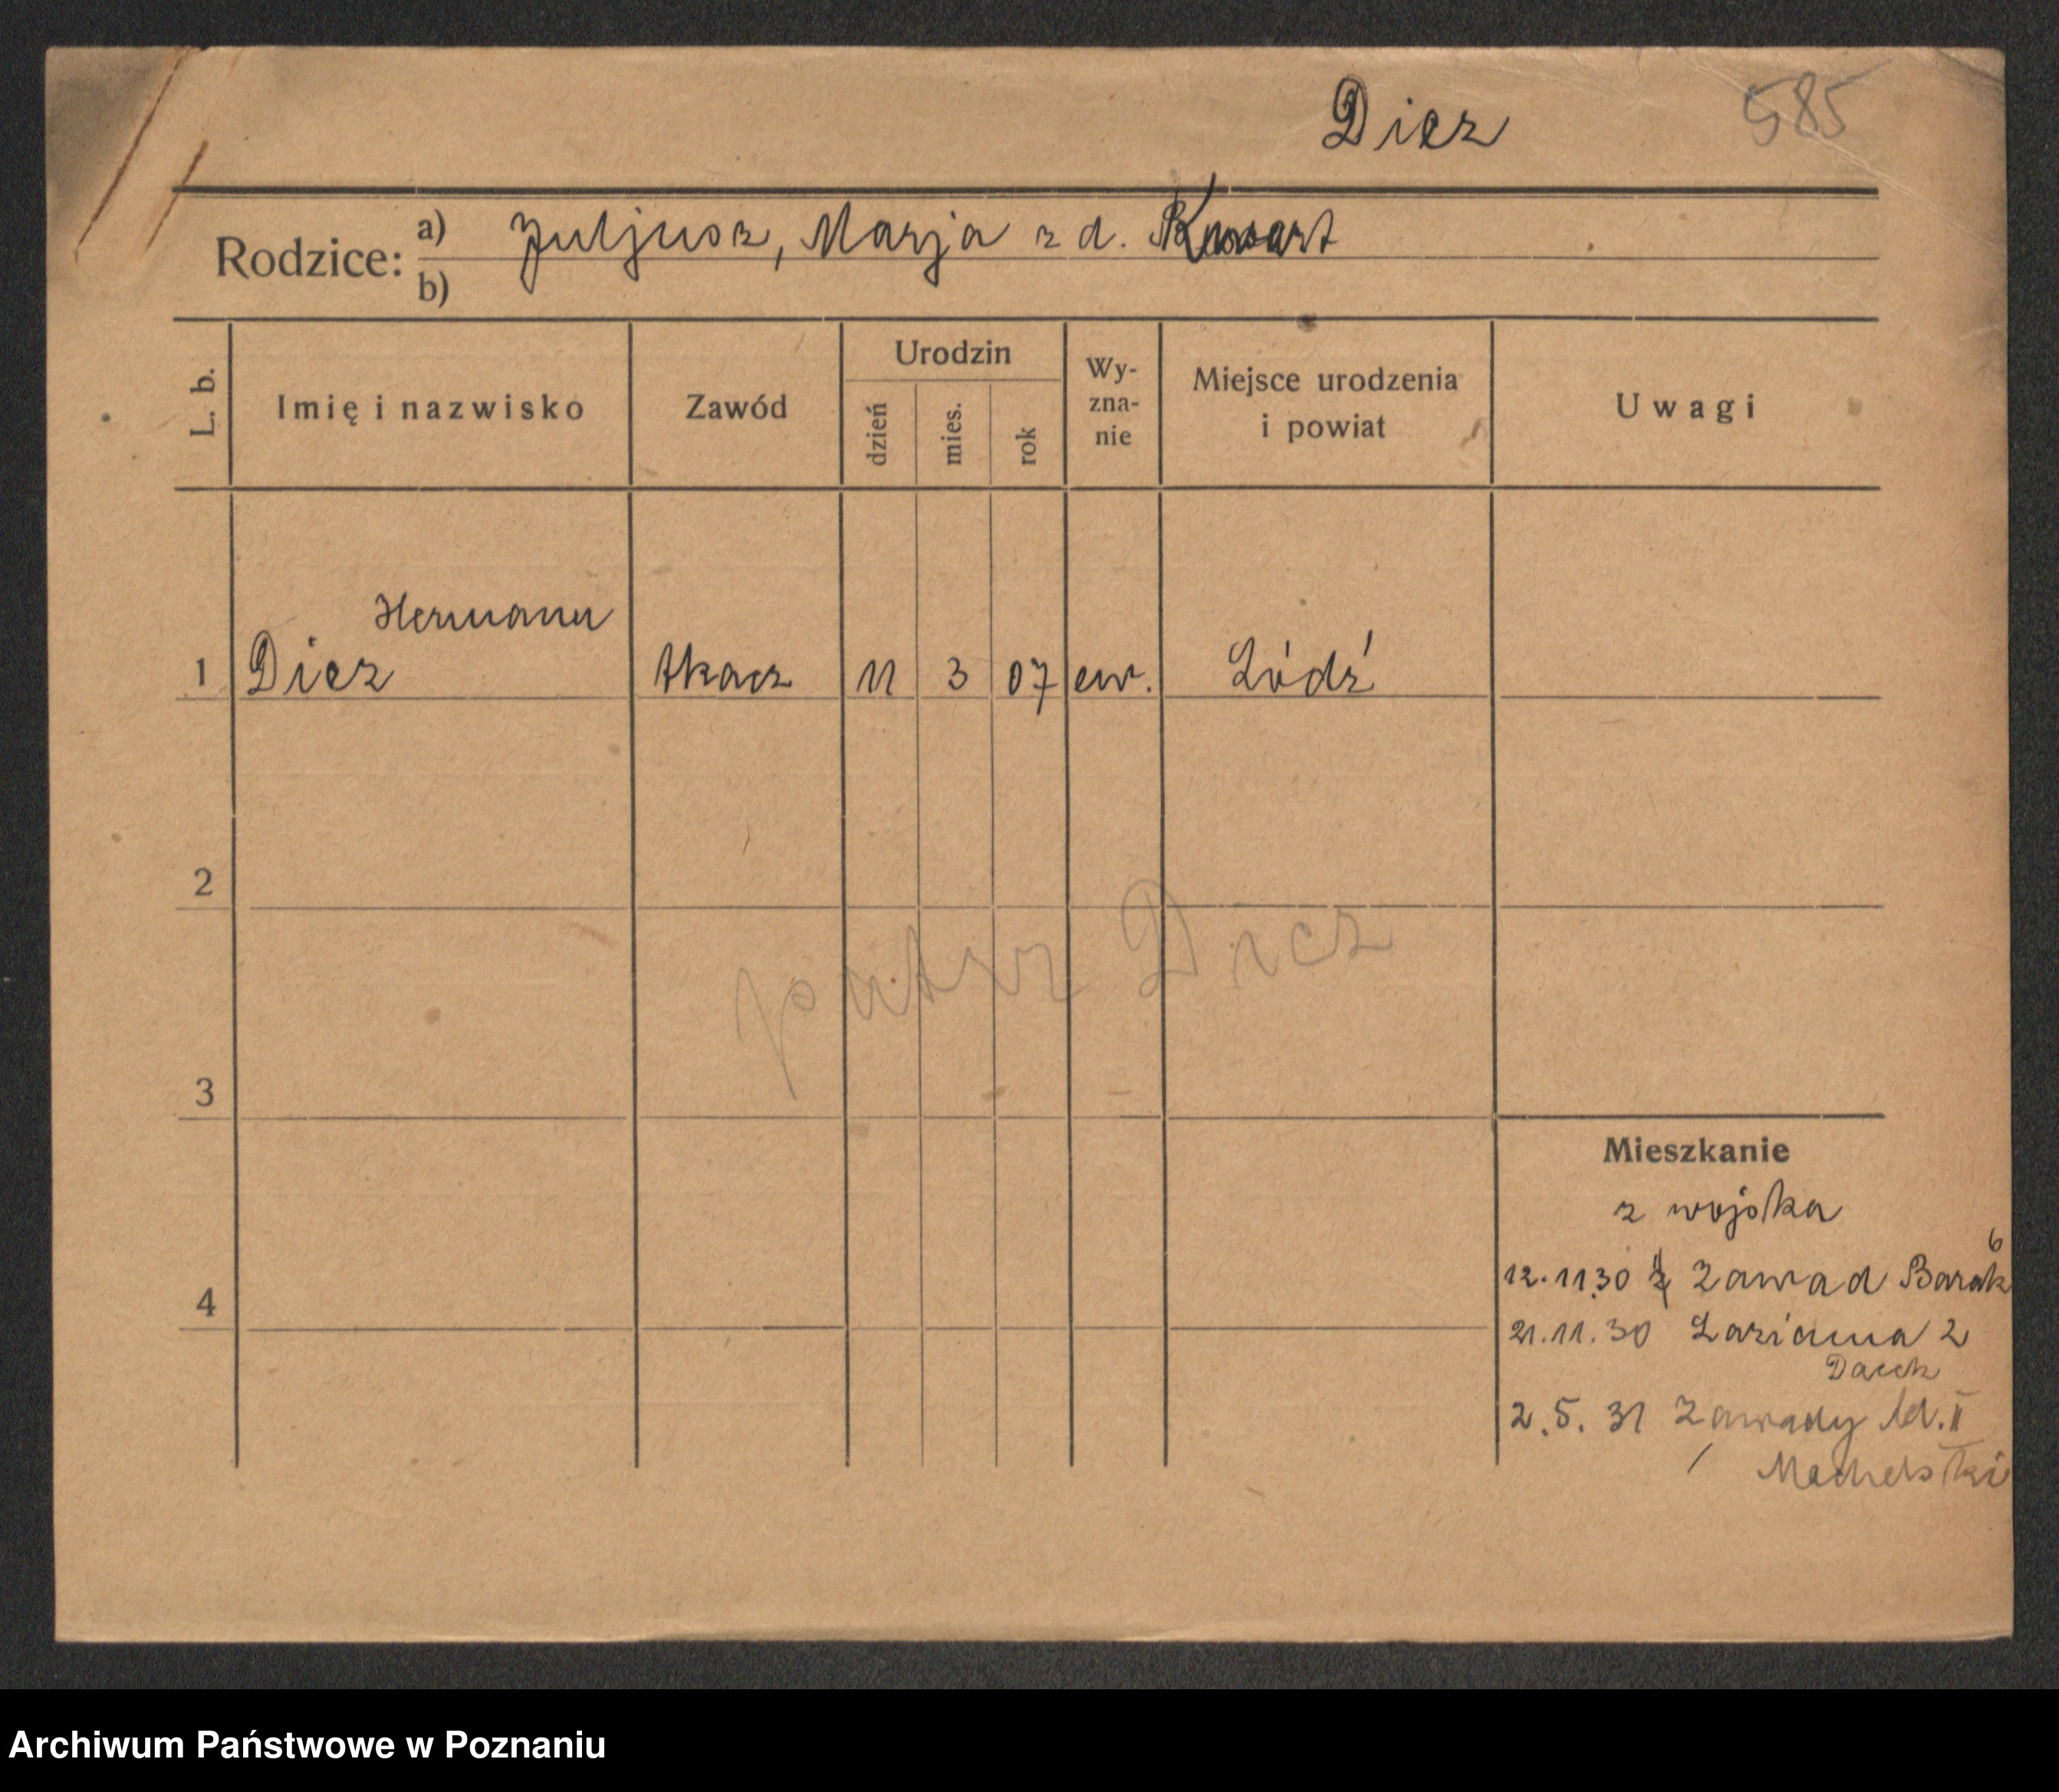 Diez 585
Rodzice: a) Juljusz, Marja z d.
b)
L. b. Imię i nazwisko Zawód Urodzin dzień mies. rok Wy-zna-nie Miejsce urodzenia i powiat Uwagi
Hermann
1 Diez tkacz 11 3 07 ew. Łódź
2
patrz Dicz
3
Mieszkanie
z wojska
6
4 12.11.30 Zawad Barak
21.11.30 2
2.5.31 Zawady bl. II
Archiwum Państwowe w Poznaniu